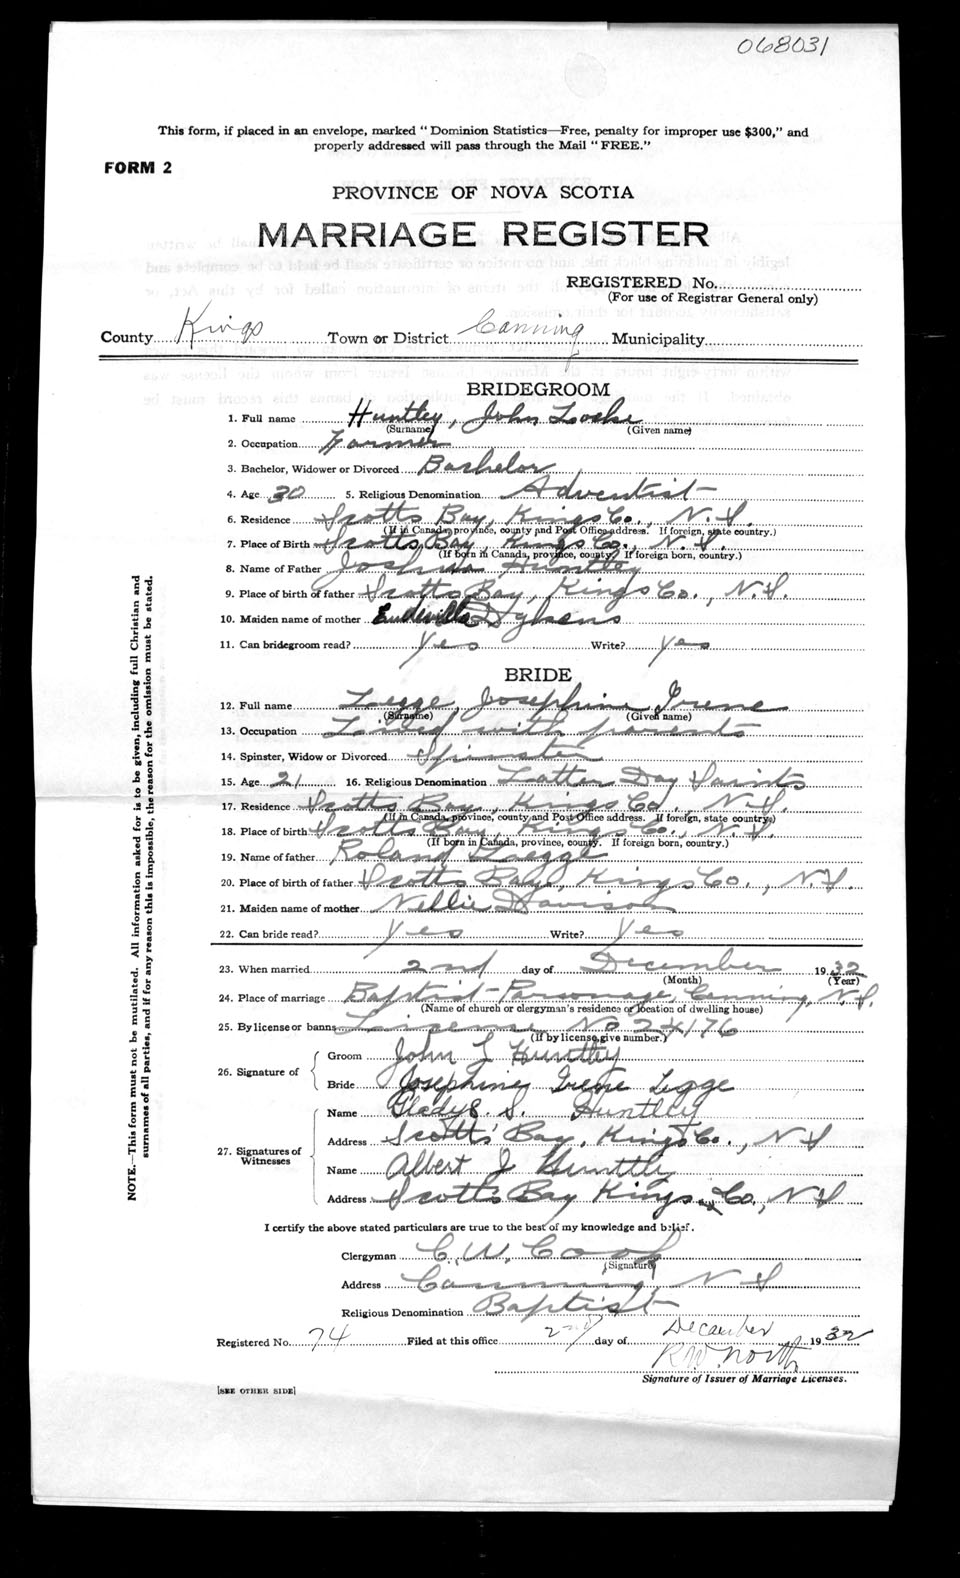 068031
This form, if placed in an envelope, marked "Dominion Statistics—Free, penalty for improper use $300," and
properly addressed will pass through the Mail "FREE."
FORM 2
PROVINCE OF NOVA SCOTIA
MARRIAGE REGISTER
REGISTERED No.
(For use of Registrar General only)
County Kings Town or District Canning Municipality
BRIDEGROOM
1. Full name Huntley, John Locke
(Surname) (Given name)
2. Occupation Farmer
3. Bachelor, Widower or Divorced Bachelor
4. Age 30 5. Religious Denomination Adventist
6. Residence Scotts Bay, Kings Co., N.S.
(If in Canada, province, county and Post Office address. If foreign, state country.)
7. Place of Birth Scotts Bay, Kings Co., N.S.
(If born in Canada, province, county. If foreign born, country.)
8. Name of Father Joshua Huntley
9. Place of birth of father Scotts Bay, Kings Co., N.S.
10. Maiden name of mother
11. Can bridegroom read? Yes Write? Yes
BRIDE
12. Full name Legge, Josephine Irene
(Surname) (Given name)
13. Occupation Lived with parents
14. Spinster, Widow or Divorced Spinster
15. Age 21 16. Religious Denomination Latter Day Saints
17. Residence Scotts Bay, Kings Co., N.S.
(If in Canada, province, county and Post Office address. If foreign, state country.)
18. Place of birth Scotts Bay, Kings Co., N.S.
(If born in Canada, province, county. If foreign born, country.)
19. Name of father Roland Legge
20. Place of birth of father Scotts Bay, Kings Co., N.S.
21. Maiden name of mother Nellie Davison
22. Can bride read? Yes Write? Yes
23. When married 2nd day of December 1932
(Month) (Year)
24. Place of marriage Baptist Parsonage, Canning, N.S.
(Name of church or clergyman's residence or location of dwelling house)
25. By license or banns License No 24176
(If by license, give number.)
26. Signature of Groom John L Huntley
Bride Josephine Irene Legge
27. Signatures of Witnesses Name Gladys S. Huntley
Address Scotts Bay, Kings Co., N S
Name Albert J Huntley
Address Scotts Bay Kings Co., N S
I certify the above stated particulars are true to the best of my knowledge and belief.
Clergyman C. W. Cook
(Signature)
Address Canning, N S
Religious Denomination Baptist
Registered No. 74 Filed at this office 2nd day of December 1932
R.W. North
Signature of Issuer of Marriage Licenses.
[SEE OTHER SIDE]
NOTE.—This form must not be mutilated. All information asked for is to be given, including full Christian and
surnames of all parties, and if for any reason this is impossible, the reason for the omission must be stated.